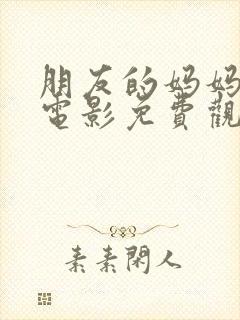 朋友的妈妈
電影免費觀
素素閑人